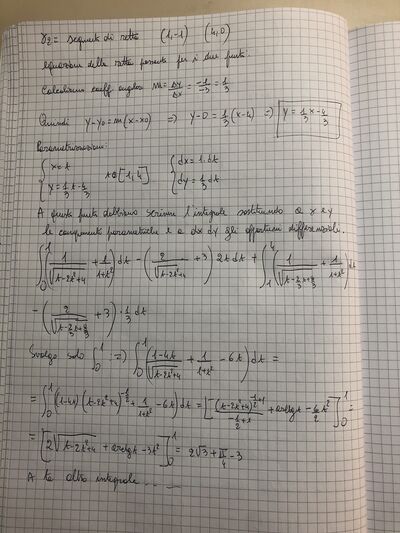 γ2 = segmento di retta (1,-1) (4,0)
equazione della retta passante per i due punti:
Calcoliamo coeff angolare m = Δy/Δx = -1/-3 = 1/3
Quindi y-y0 = m(x-x0) => y-0 = 1/3 (x-4) => y = 1/3 x - 4/3
Parametrizzazione:
{ x = t
y = 1/3 t - 4/3 t∈[1,4] { dx = 1·dt
dy = 1/3 dt
A questo punto dobbiamo scrivere l'integrale sostituendo a x e y
le componenti parametriche e a dx dy gli opportuni differenziali.
∫_0^1 (1/√(t-2t²+4) + 1/(1+t²)) dt - (2/√(t-2t²+4) + 3) 2t dt + ∫_1^4 (1/√(t-2/3 t+8/3 +4) + 1/(1+t²)) dt
- (2/√(t-2/3 t+8/3 +4) + 3) · 1/3 dt
Svolgo solo ∫_0^1 :=> ∫_0^1 ((1-4t)/√(t-2t²+4) + 1/(1+t²) - 6t) dt =
= ∫_0^1 (1-4t)(t-2t²+4)^(-1/2) + 1/(1+t²) - 6t) dt = [(t-2t²+4)^(-1/2+1)/(-1/2+1) + arctg t - 6/2 t²]_0^1 =
= [2√(t-2t²+4) + arctg t - 3t²]_0^1 = 2√3 + π/4 - 3
A te altro integrale . . . ___